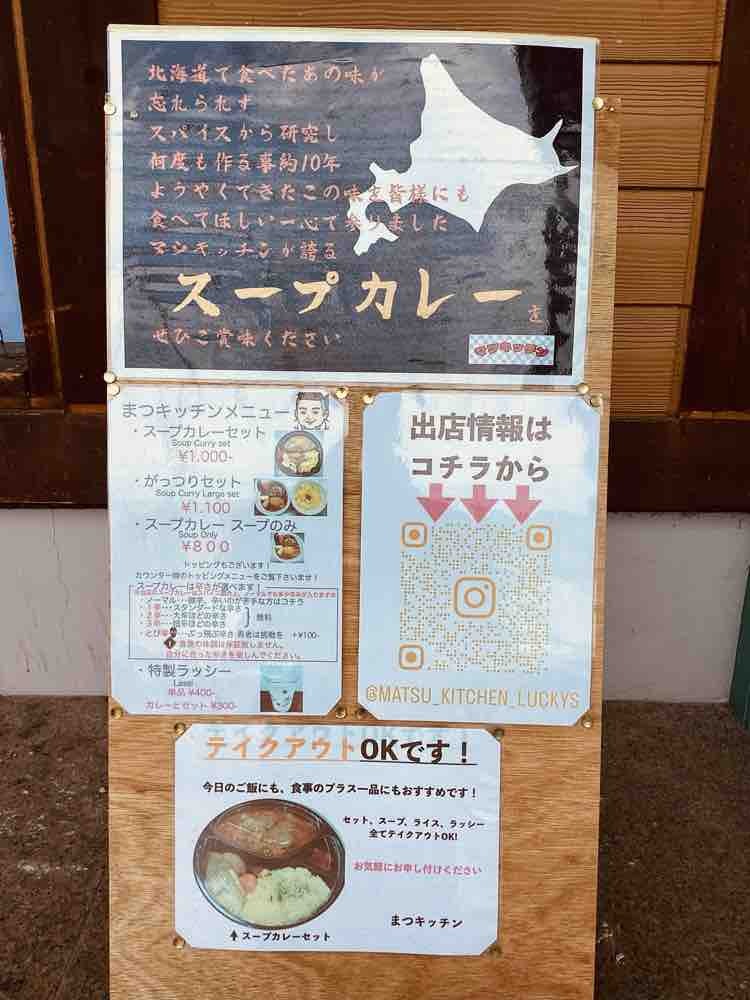 北海道で食べたあの味が
忘れられず
スパイスから研究し
何度も作る事約10年
ようやくできたこの味を皆様にも
食べてほしい一心で参りました
マツキッチンが誇る
スープカレーを
ぜひご賞味ください
マツキッチン
まつキッチンメニュー
・スープカレーセット
Soup Curry set
¥1,000-
・がっつりセット
Soup Curry Large set
¥1.100
・スープカレー スープのみ
Soup Only
¥800
トッピングもございます！
カウンター横のトッピングメニューをご覧下さいませ！
スープカレーは辛さが選べます！
・ノーマル・・・
辛いのが苦手な方はコチラ
・1辛・・・スタンダードな辛さ
・2辛・・・大辛ほどの辛さ
・3辛・・・
無料
・とび辛
ぶっ飛ぶ辛さ 勇者は挑戦を +¥100-
自分に合った辛さを楽しんでください。
・特製ラッシー
Lassi
単品 ¥400-
カレーとセット ¥300-
出店情報は
コチラから
@MATSU_KITCHEN_LUCKYS
テイクアウトOKです！
今日のご飯にも、食事のプラス一品にもおすすめです！
セット、スープ、ライス、ラッシー
全てテイクアウトOK!
お気軽にお申し付けください
まつキッチン
スープカレーセット